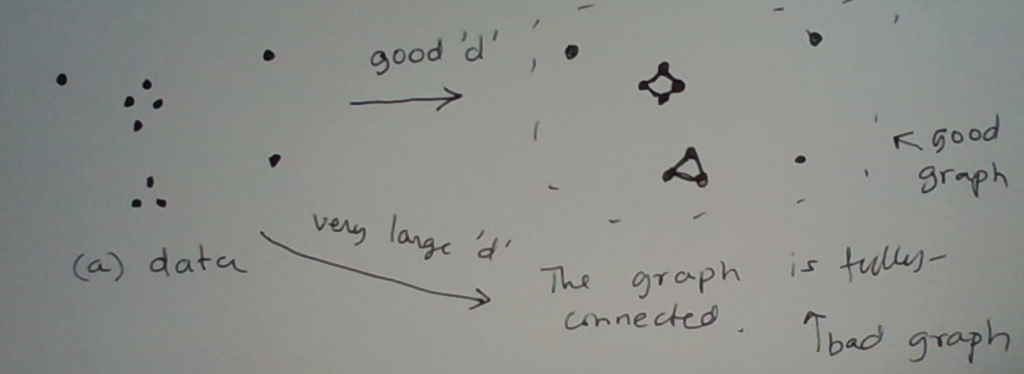 good 'd'
good
graph
very large 'd'
(a) data
The graph is fully-
connected.
bad graph